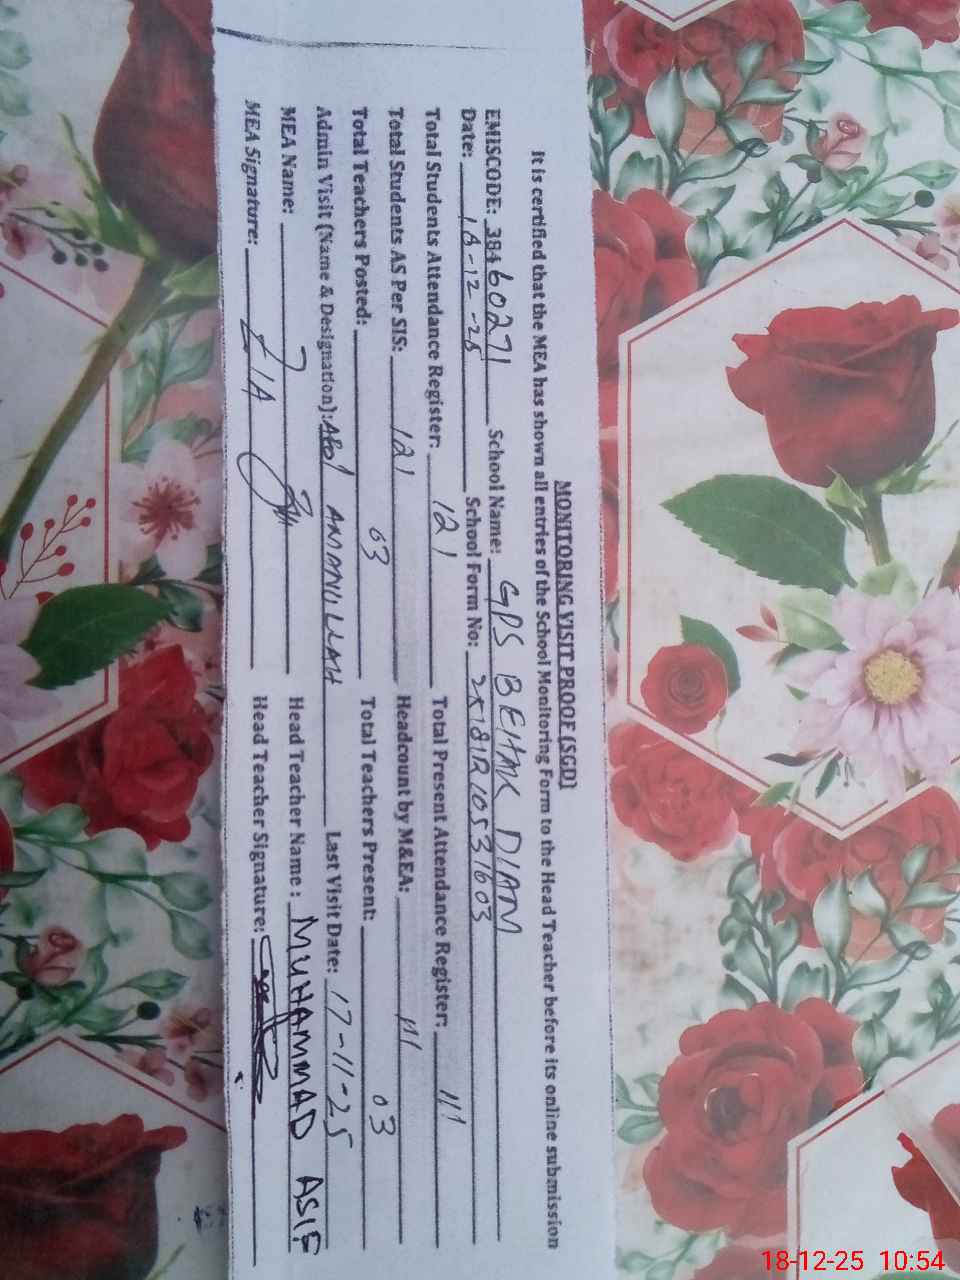 MONITORING VISIT PROOF (SGD)
It is certified that the MEA has shown all entries of the School Monitoring Form to the Head Teacher before its online submission
EMISCODE: 38460271 School Name: GPS BEHAK DIAM
Date: 18-12-25 School Form No: 2K181R10531603
Total Students Attendance Register: 121 Total Present Attendance Register: 111
Total Students AS Per SIS: 121 Headcount by M&EA: 111
Total Teachers Posted: 03 Total Teachers Present: 03
Admin Visit (Name & Designation): AMANULLAH Last Visit Date: 17-11-25
MEA Name: Head Teacher Name: MUHAMMAD ASIF
MEA Signature: ZIA Head Teacher Signature:
18-12-25 10:54